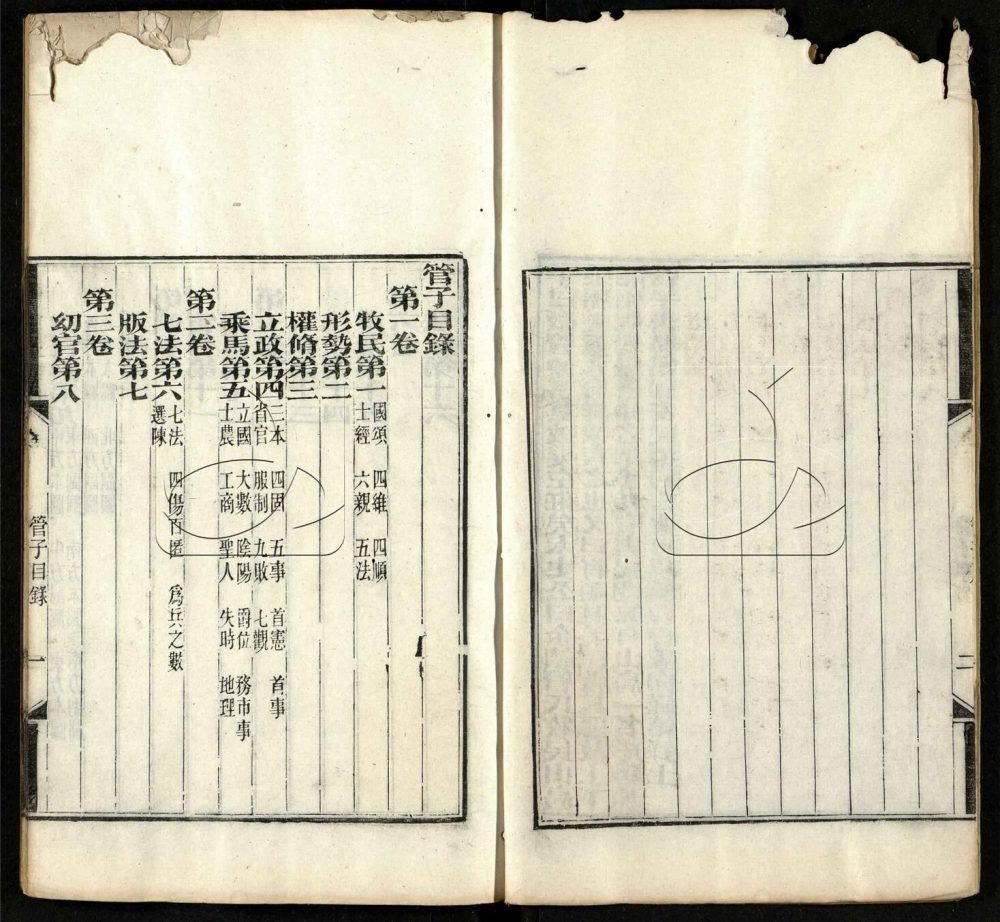 二
管子目錄
第一卷
牧民第一
國頌 四維 四順
士經 六親 五法
形勢第二
權脩第三
立政第四
三本 四固 五事 首憲 首事
省官 服制 九敗 七觀
乘馬第五
立國 大數 陰陽 爵位 務市事
士農 工商 聖人 失時 地理
第二卷
七法第六
七法 四傷百匿 爲兵之數
選陳
版法第七
第三卷
幼官第八
管子目錄 一